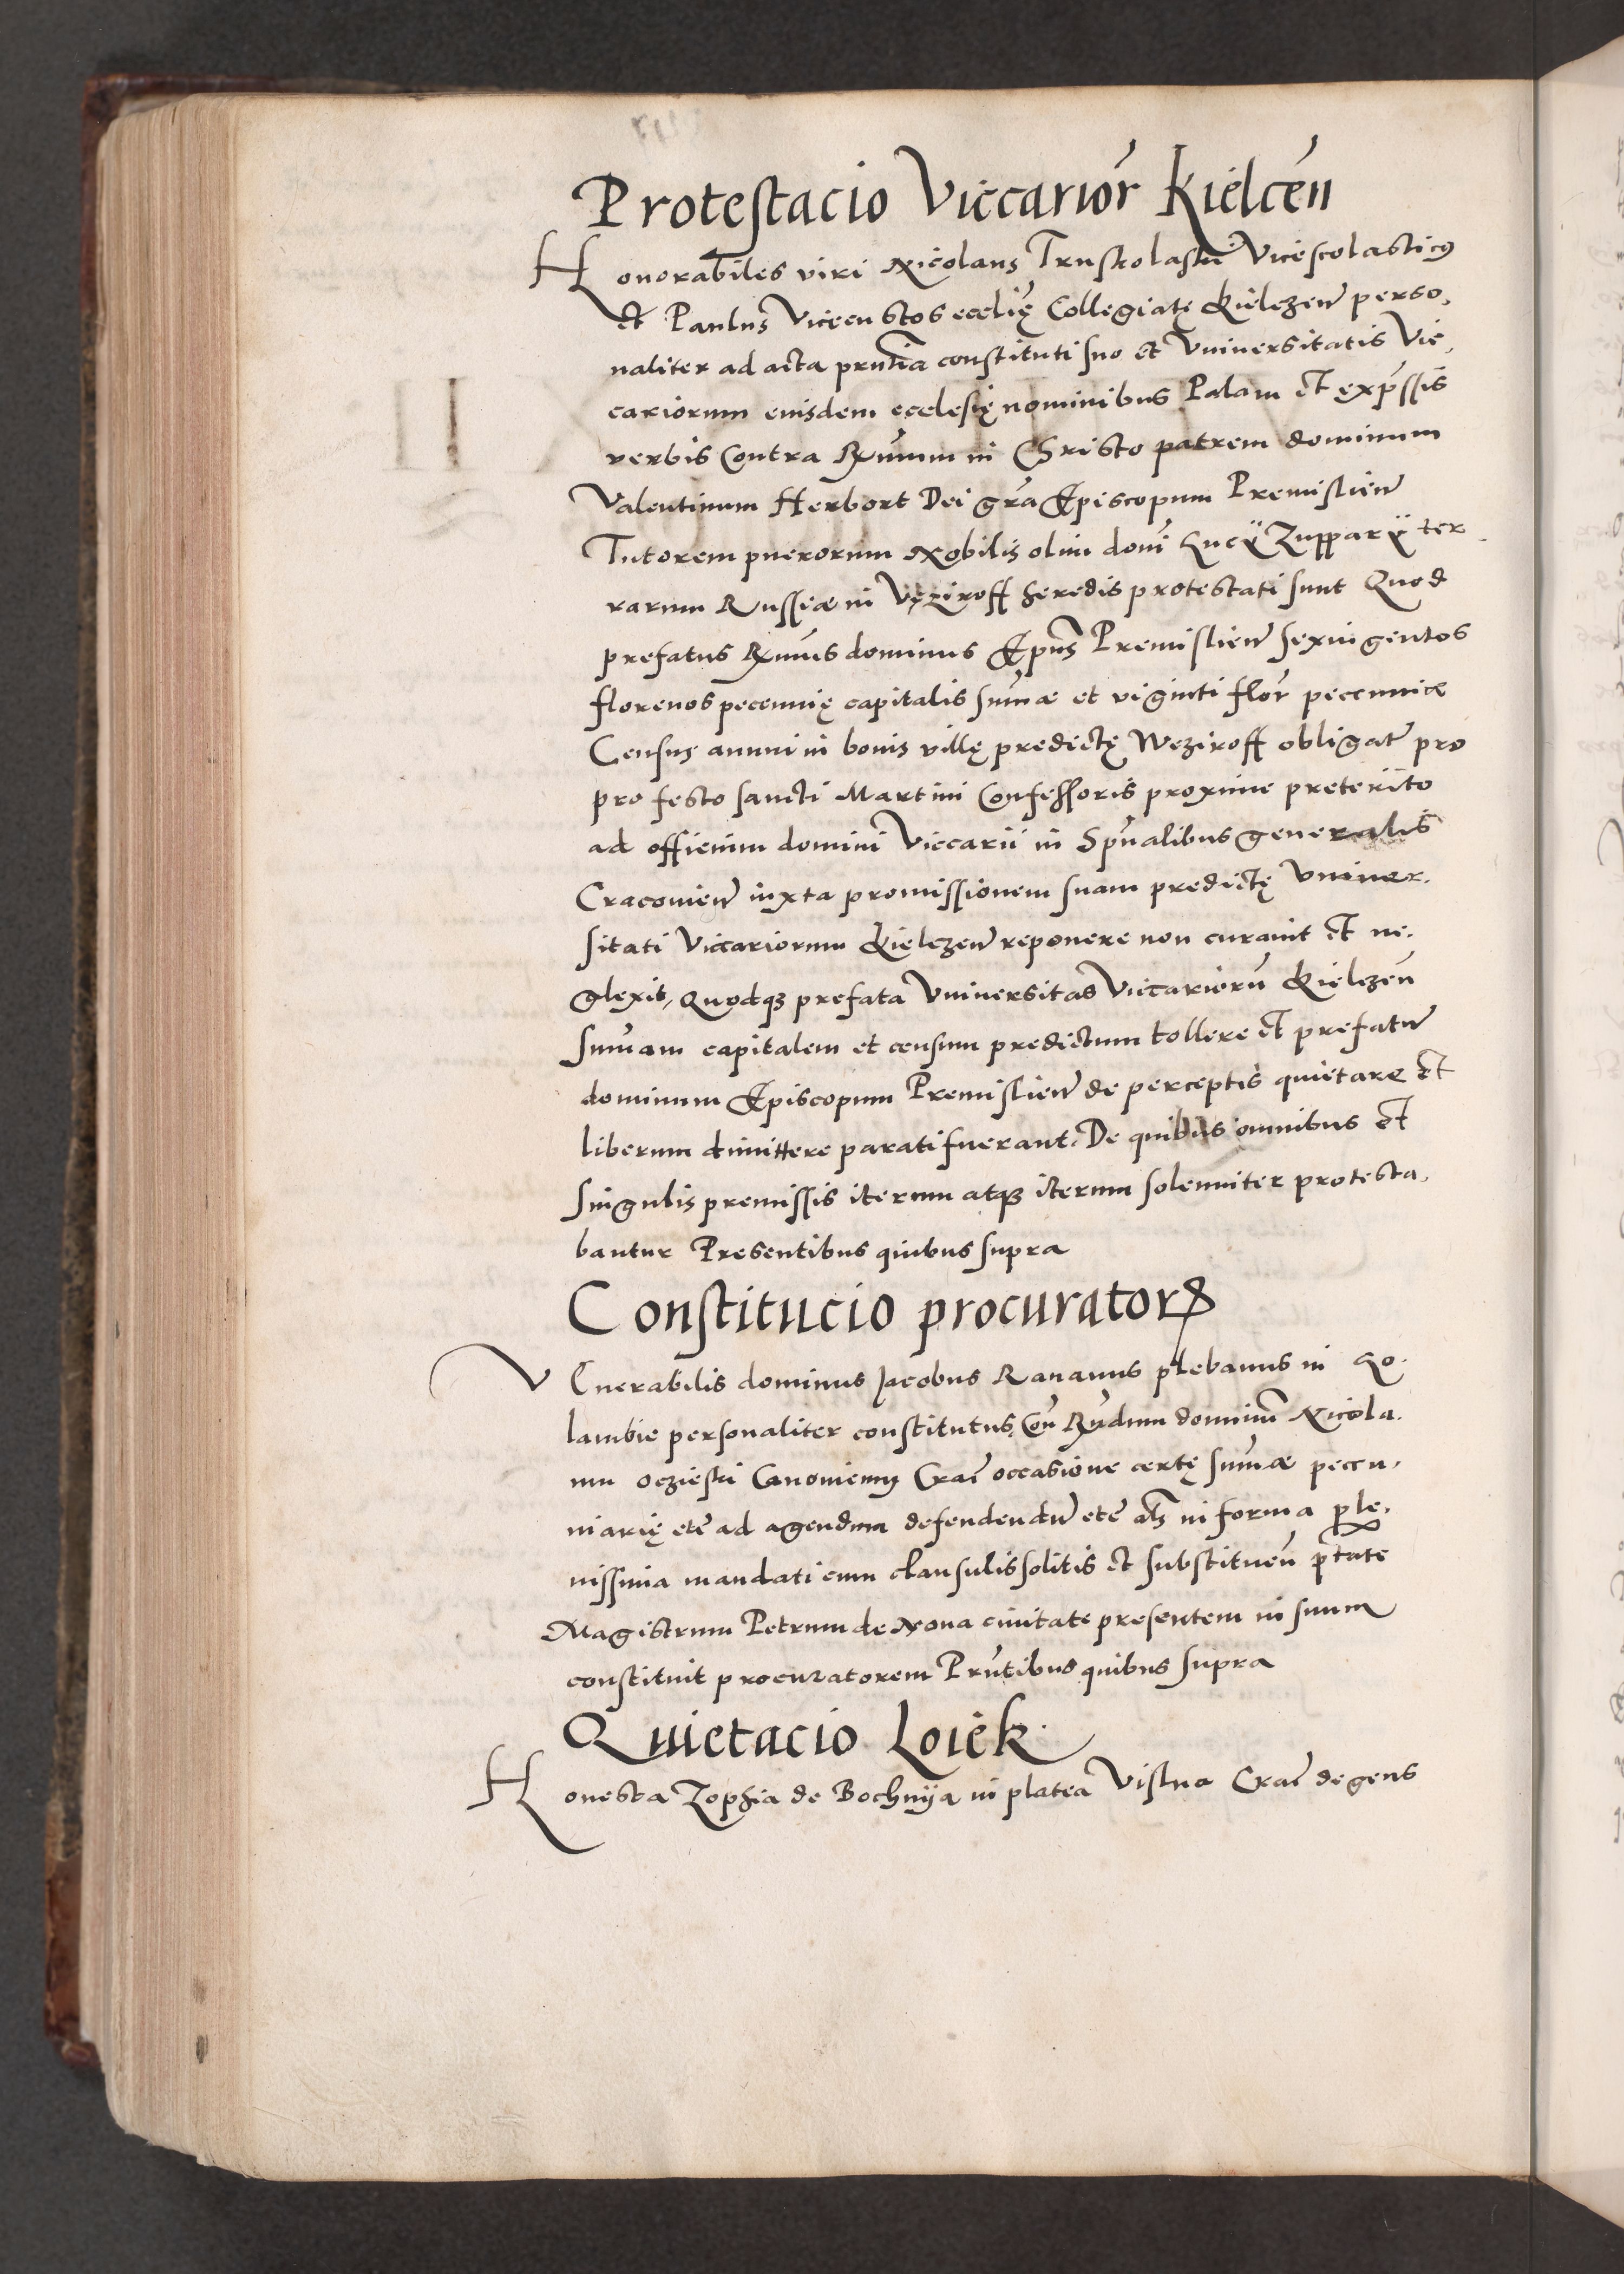 Protestacio Viccarior̄ Kielcen̄
Honorabiles viri Nicolaus Truskolaski Vicescolasticꝯ
et Paulus Vicecustos eccliȩ Collegiatȩ Kielczen̄ perso,
naliter ad acta prn̄tia constituti suo et Vniuersitatis Vic,
cariorum eiusdem ecclesiȩ nominibus Palam et exp̄ssis
verbis Contra Rx̄mum in Christo patrem dominum
Valentinum Herbort Dei gr̄a Episcopum Premislien̄
Tutorem puerorum Nobilis olim domī Lucÿ Zupparÿ ter
rarum Russiæ in Vȩziroff heredis protestati sunt Quod
prefatus Rx̄mus dominus Epūs Premislien̄ sexingentos
florenos peccuniȩ capitalis sum̄æ et viginti flor̄ peccuniæ
Census annui in bonis villȩ predictȩ Weziroff obligat̄ pro
pro festo sancti Martini Confessoris proxime preterito
ad officium domini Viccarii in Spūalibus generalis
Cracovien̄ iuxta promissionem suam predictȩ Vniuer.
sitati Viccariorum Kielczen̄ reponere non curauit et ne.
glexit, Quodqꝫ prefata Vniuersitas Viccariorū Kielczen̄
sum̄am capitalem et censum predictum tollere et prefatū
dominum Episcopum Premislien̄ de perceptis quietare et
liberum dimittere parati fuerant. De quibus omnibus et
singulis premissis iterum atqꝫ iterum solenniter protesta,
bantur Presentibus quibus supra
Constitucio procuratorꝝ
Venerabilis dominus Jacobus Rananus plebanus in Lo.
lambie personaliter constitutus, Con̄ Rn̄dum dominū Nicola.
um Oczieski Canonicum Crac̄ occasione certȩ sum̄æ peccu,
niariȩ etc̄ ad agendum defendendū etc̄ al̄s in forma ple,
nissima mandati cum clausulis solitis et substituen̄ p̄tate
Magistrum Petrum de Noua ciuitate presentem in suum
constituit procuratorem Prn̄tibus quibus supra
Quietacio Loiek
Honesta Zophia de Bochnÿa in platea Vislna Crac̄ degens